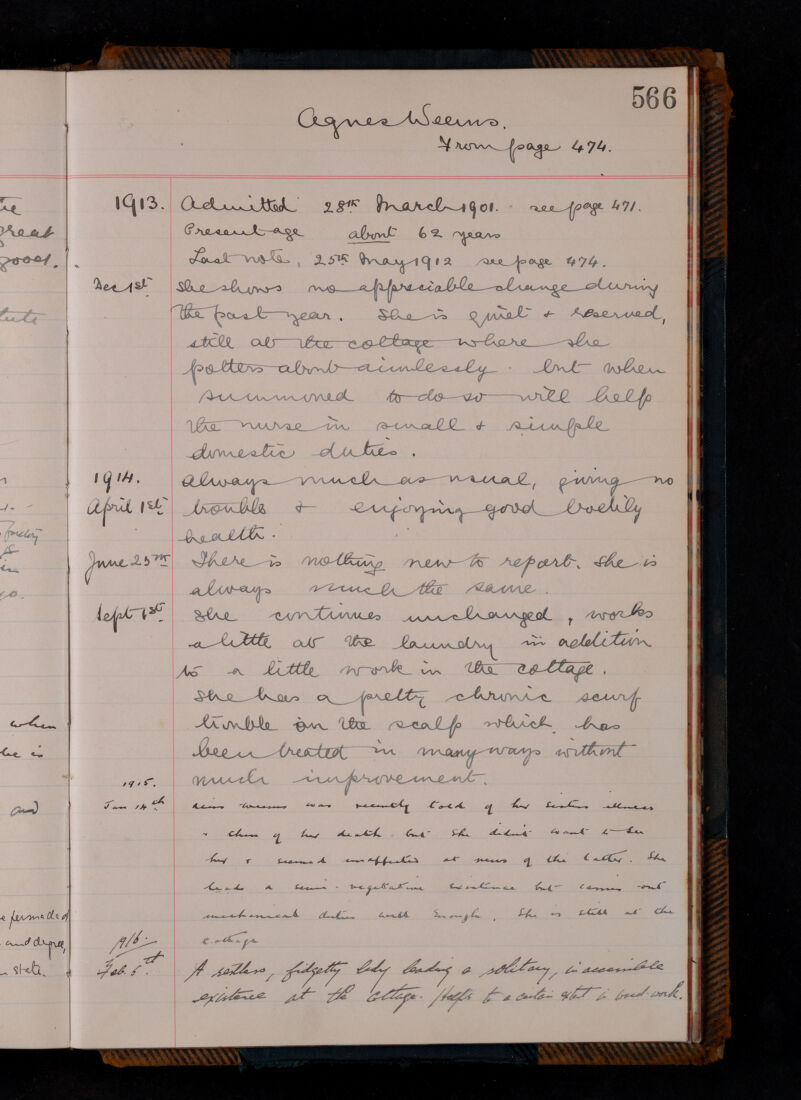 566
Agnes Weems.
From page 474.
1913. Admitted 28th March 1901. see page 471.
Present age about 62 years
Last note, 25th May 1912 see page 474.
Dec 1st She shows no appreciable change during
the past year. She is quiet & reserved,
still at the cottage where she
potters about aimlessly. but when
summoned to do so will help
the nurse in small & simple
domestic duties.
1914. Always much as usual, giving no
April 1st trouble & enjoying good bodily
health.
June 25th There is nothing new to report. She is
always much the same.
Sept 1st She continues unchanged, works
a little at the laundry in addition
to a little work in the cottage.
She has a pretty chronic scurf
trouble on the scalp which has
been treated in many ways without
much improvement.
1915.
Jan 14th Miss Weems was recently told of her sisters illness
& then of her death but she didn't want to see
her & seemed unaffected at news of the latter. She
leads a semi-vegetative existence but carries out
mechanical duties well enough. She is still at the
Cottage
1916.
Feb. 5th A restless, fidgetty lady leading a solitary, inaccessible
existence at the cottage. Helps to a certain extent in ward-work.
great
good.
when
she is
and
and degree,
state.